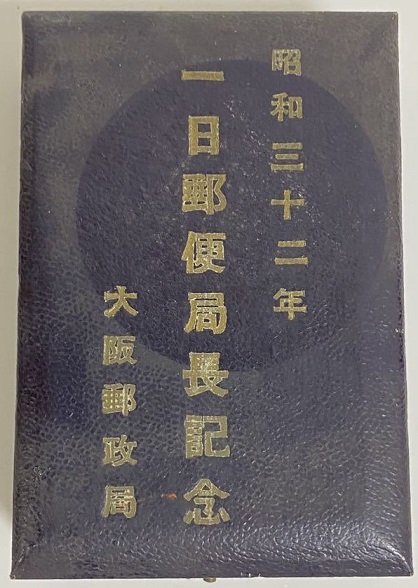 昭和三十二年
一日郵便局長記念
大阪郵政局